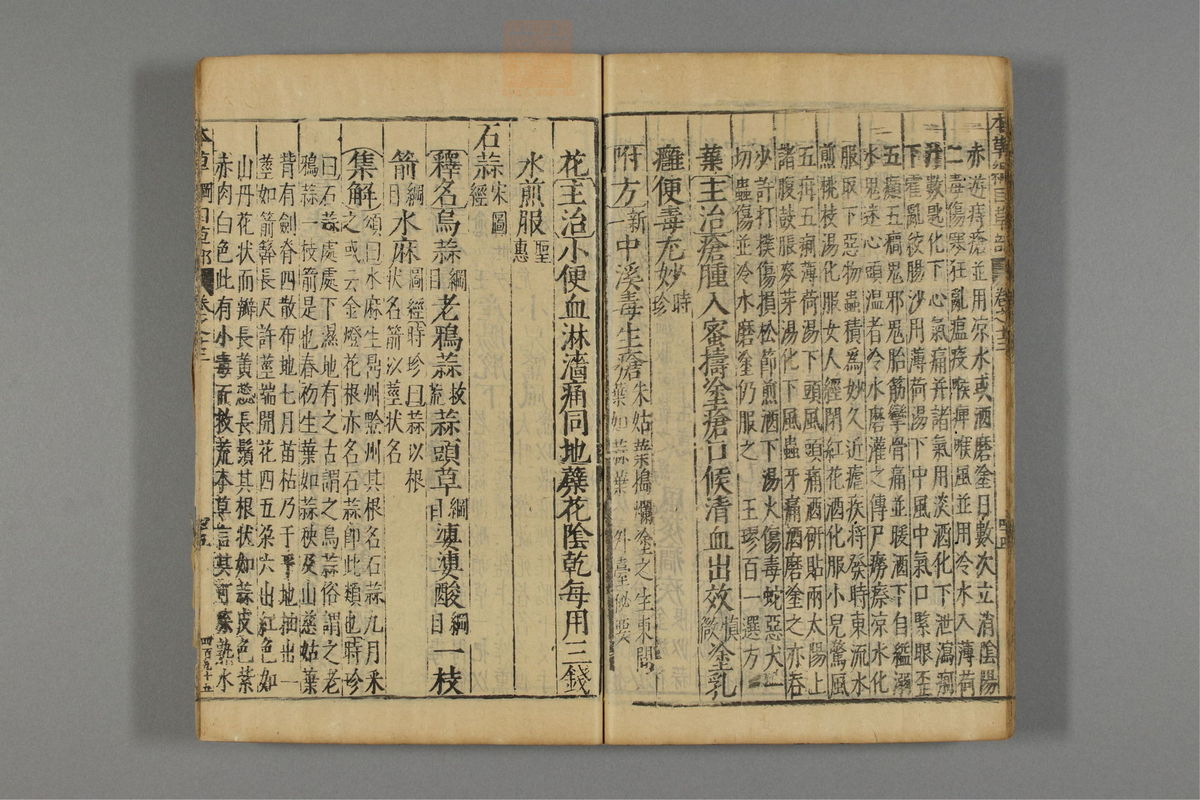 本草綱目草部 卷之十三
赤游痔瘡並用凉水或酒磨塗日數次立消陰陽
二毒傷寒狂亂瘟疫喉痺喉風並用冷水入薄荷
汁數匙化下心氣痛并諸氣用淡酒化下泄瀉痢
下霍亂絞腸沙用薄荷湯下中風中氣口緊眼歪
五癲五癇鬼邪鬼胎筋攣骨痛並暖酒下自縊溺
水鬼迷心頭温者冷水磨灌之傳尸癆瘵凉水化
服取下惡物蟲積為妙久近瘧疾將發時東流水
煎桃枝湯化服女人經閉紅花酒化服小兒驚風
五疳五痢薄荷湯下頭風頭痛酒研貼兩太陽上
諸腹鼓脹麥芽湯化下風蟲牙痛酒磨塗之亦吞
少許打撲傷損松節煎酒下湯火傷毒蛇惡犬一
切蟲傷並冷水磨塗仍服之 王璆百一選方
葉主治瘡腫入蜜擣塗瘡口候清血出效慎微塗乳
癰便毒尤妙時珍
附方新一中溪毒生瘡朱姑葉搗爛塗之生東間葉如蒜葉 外臺秘要
花主治小便血淋濇痛同地蘗花陰乾每用三錢
水煎服聖惠
石蒜宋圖經
釋名烏蒜綱目老鴉蒜救荒蒜頭草綱目婆婆酸綱目一枝
箭綱目水麻圖經時珍曰蒜以根狀名箭以莖狀名
集解頌曰水麻生鼎州黔州其根名石蒜九月采之或云金燈花根亦名石蒜即此類也時珍
曰石蒜處處下濕地有之古謂之烏蒜俗謂之老
鴉蒜一枝箭是也春初生葉如蒜秧及山慈姑葉
背有劍脊四散布地七月苗枯乃于平地抽出一
莖如箭簳長尺許莖端開花四五朵六出紅色如
山丹花狀而瓣長黄蕊長鬚其根狀如蒜皮色紫
赤肉白色此有小毒而救荒本草言其可煠熟水
本草綱目草部 卷之十三
四百九十五